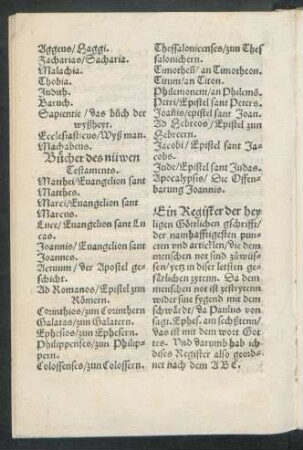 Aggeus/Haggi.
Zacharias/Sacharia.
Malachia.
Thobia.
Judith.
Baruch.
Sapientie/das bůch der
wyßheyt.
Ecclesiasticus/Wyß man.
Machabeus.
Bücher des nüwen
Testaments.
Matthei/Euangelion sant
Matthes.
Marci/Euangelion sant
Marcus.
Luce/Euangelion sant Lu
cas.
Joannis/Euangelion sant
Joannes.
Actuum/der Apostel ge-
schicht.
Ad Romanos/Epistel zum
Römern.
Corinthios/zun Corinthern
Galatas/zun Galatern.
Ephesios/zun Ephesern.
Philippenses/zun Philip-
pern.
Colossenses/zun Colossern.
Thessalonicenses/zun Thes
salonichern.
Timotheū/an Timotheon.
Titum/an Titon.
Philemonem/an Philemō.
Petri/Epistel sant Peters.
Joānis/epistel sant Joan.
Ad Hebreos/Epistel zun
Hebreern.
Jacobi/Epistel sant Ja-
cobs.
Jude/Epistel sant Judas.
Apocalypsis/Die Offen-
barung Joannis.
Ein Register der hey-
ligen Göttlichen gschrifft/
der namhafftigesten pun-
cten und articklen/die dem
menschen not sind zůwüs-
sen/yetz in diser letsten ge-
färlichen zytenn. Da dem
menschen not ist zestrytenn
wider sine fygend mit dem
schwärdt/da Paulus von
sagt. Ephes. am sechßtenn/
das ist mit dem wort Got
tes. Und darumb hab ich
dises Register also geord-
net nach dem ABC.